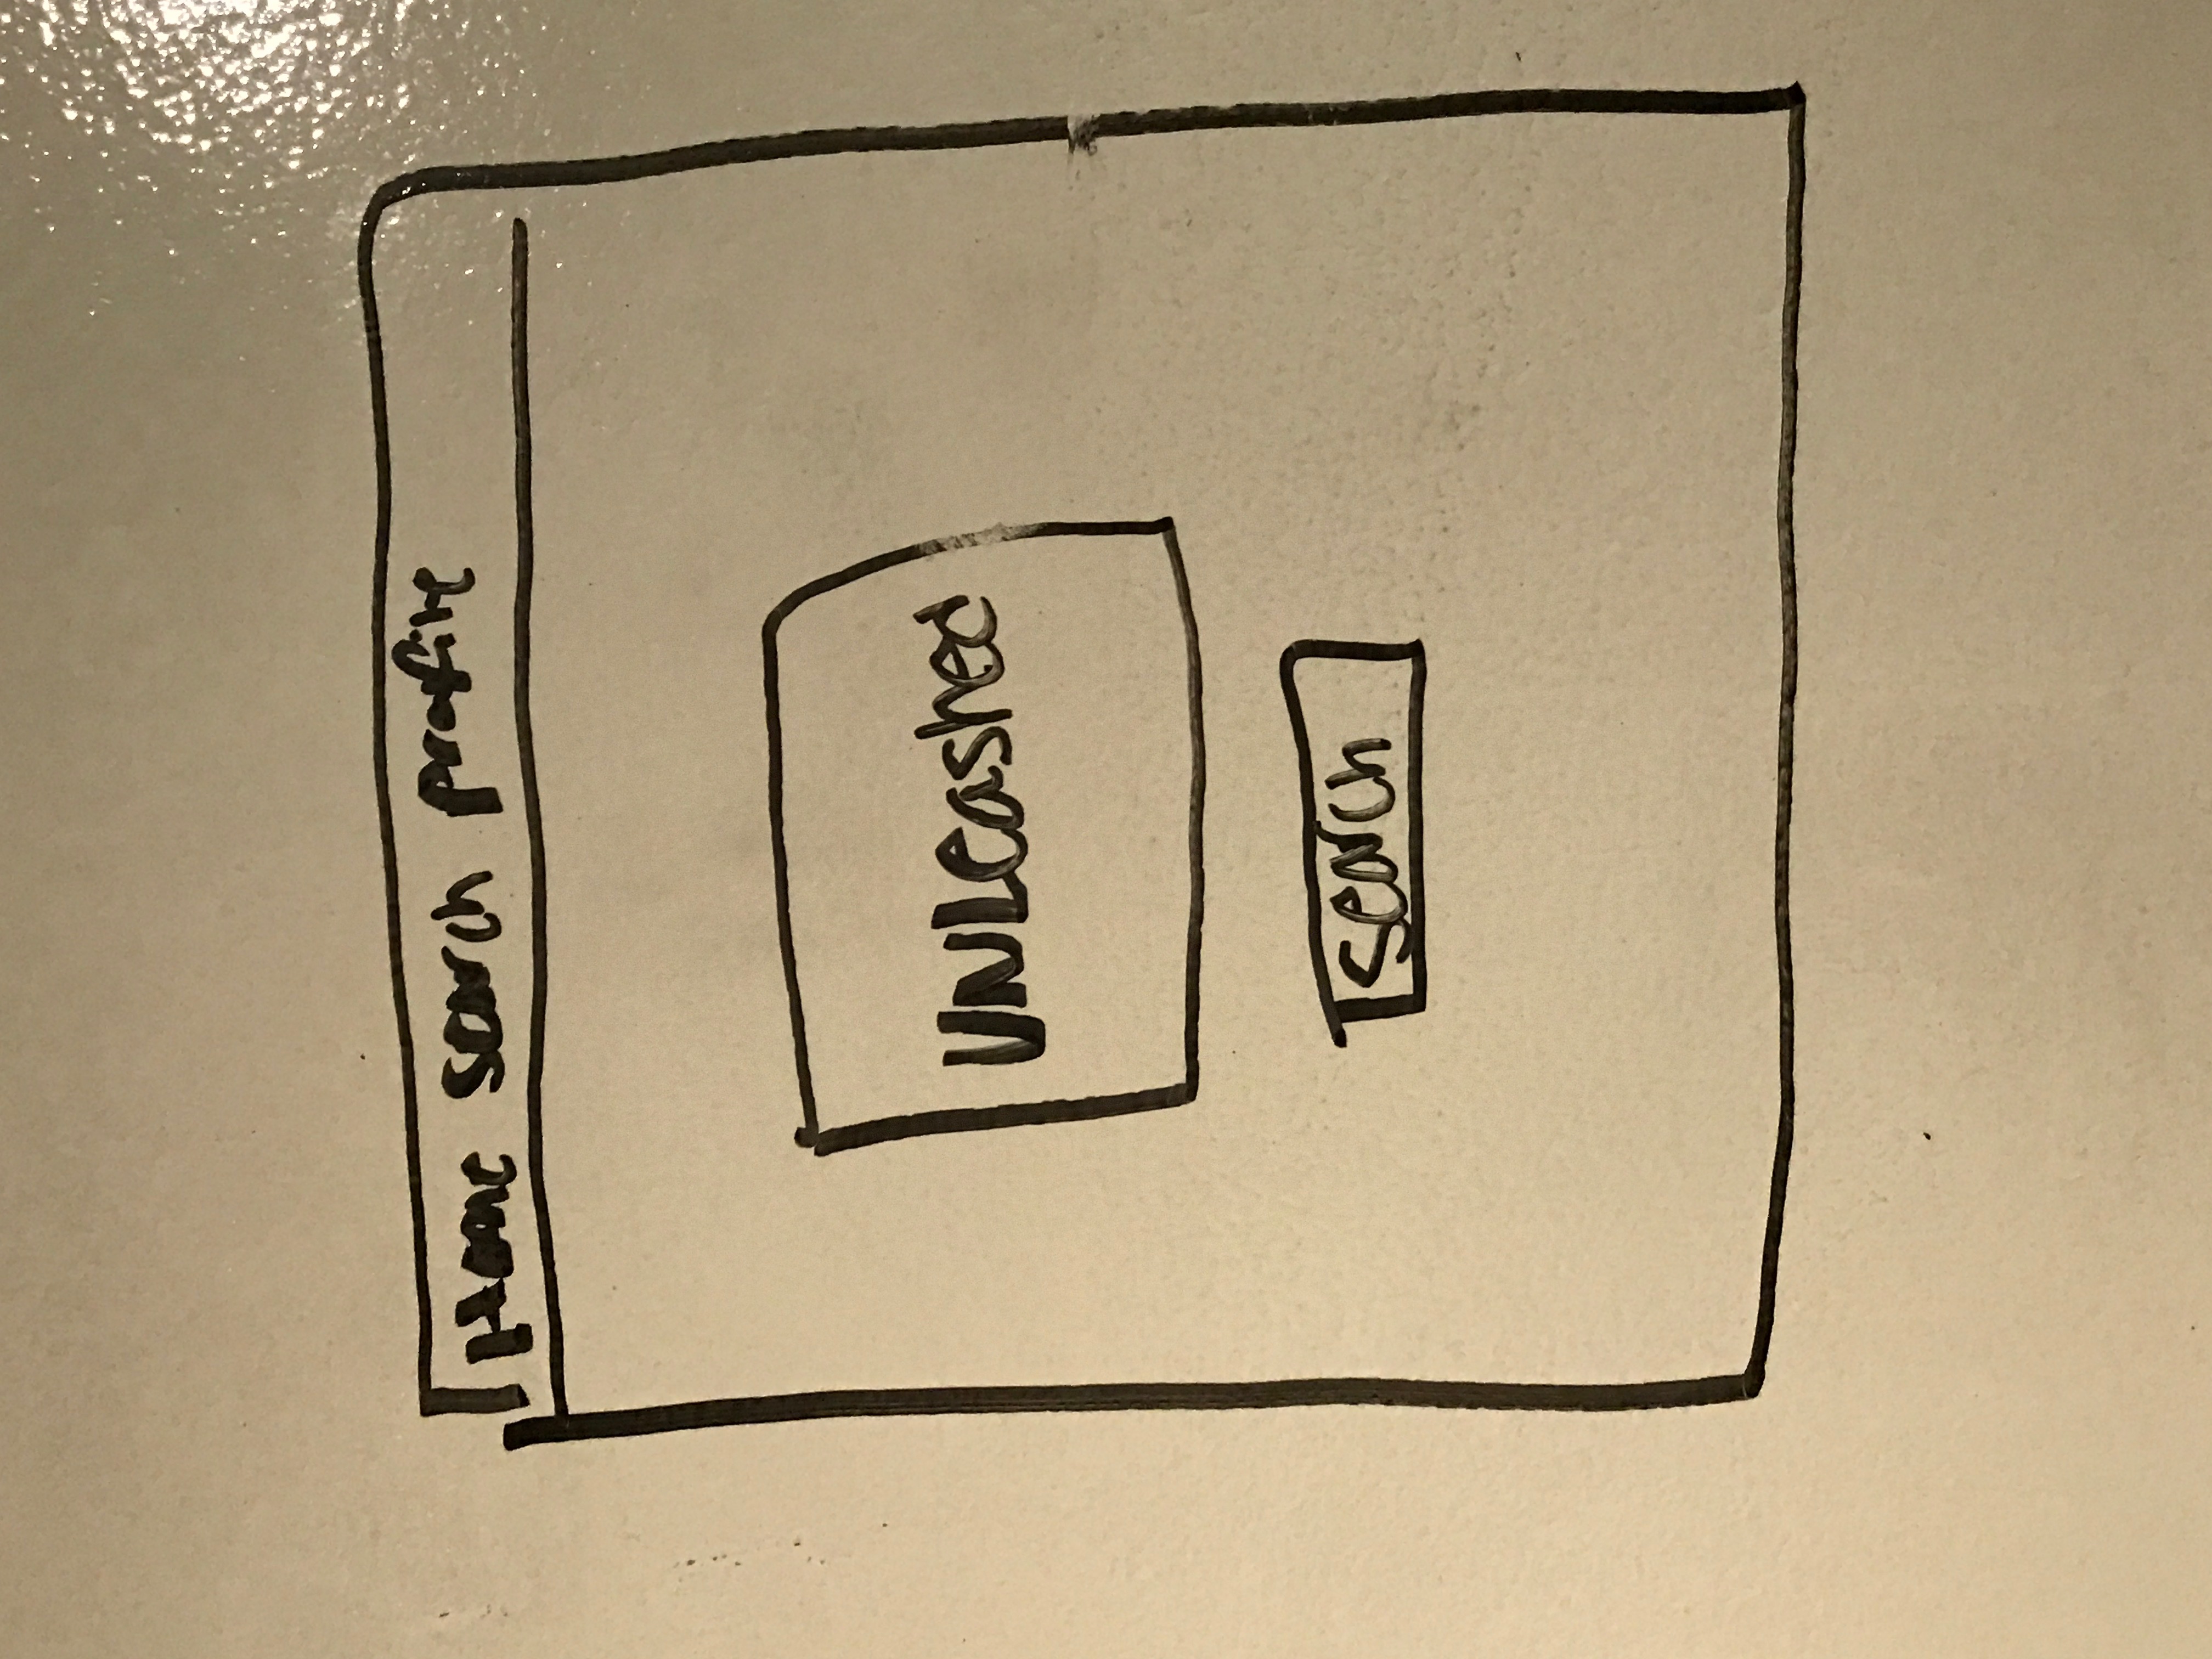 Home search profile
UNLeashed
search